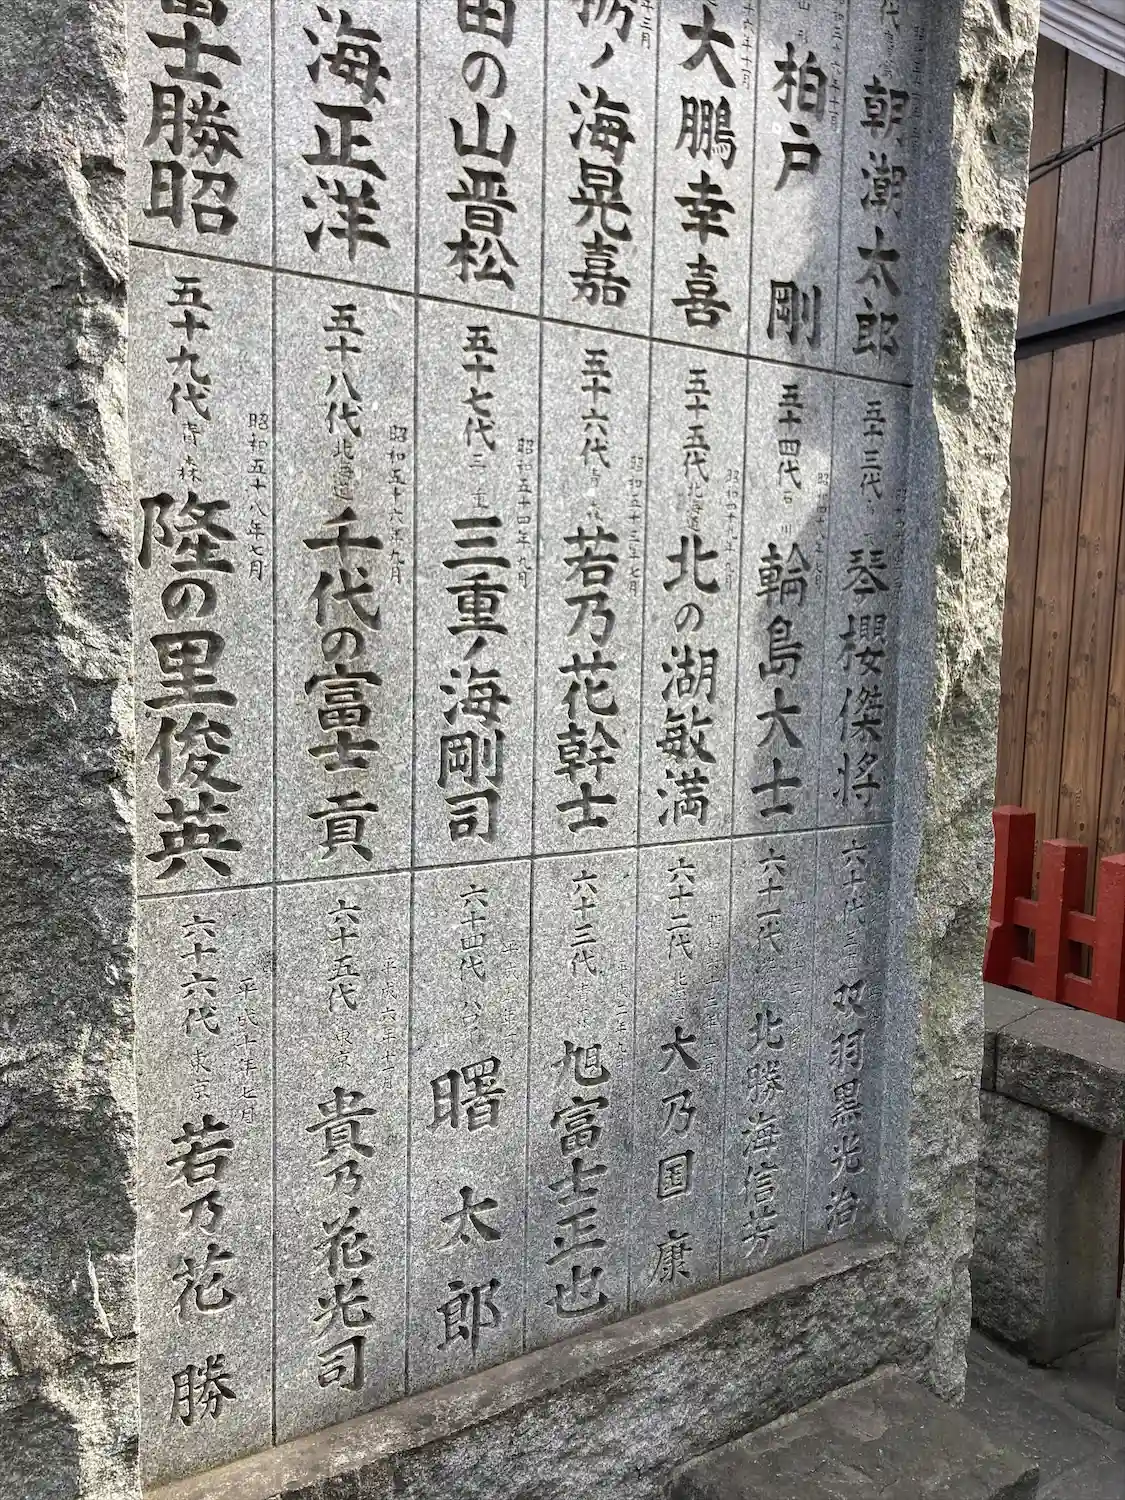 朝潮太郎
柏戸 剛
大鵬幸喜
栃ノ海晃嘉
田の山晋松
海正洋
富士勝昭
五十三代
琴櫻傑将
五十四代 石川
昭和四十九年七月
輪島大士
五十五代 北海道
昭和四十九年九月
北の湖敏満
五十六代 青森
昭和五十三年七月
若乃花幹士
五十七代 三重
昭和五十四年九月
三重ノ海剛司
五十八代 北海道
昭和五十六年九月
千代の富士 貢
五十九代 青森
昭和五十八年七月
隆の里俊英
六十代
双羽黒光治
六十一代
北勝海信芳
六十二代
大乃国 康
六十三代
旭富士正也
六十四代
曙 太郎
六十五代 東京
平成六年十一月
貴乃花光司
六十六代 東京
平成十年七月
若乃花 勝